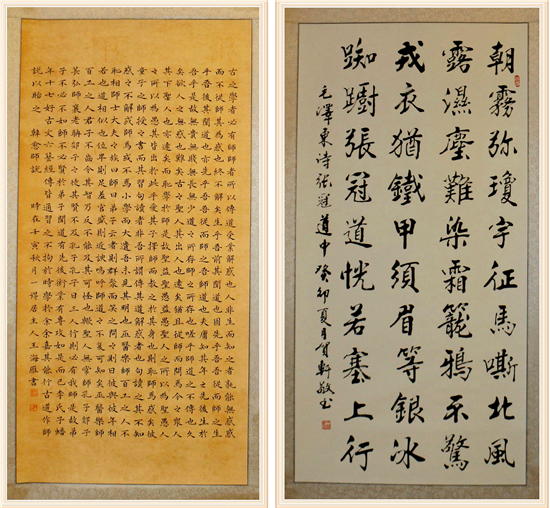 古之學者必有師師者所以傳道受業解惑也人非生而知之者孰能無惑
惑而不從師其為惑也終不解矣生乎吾前其聞道也固先乎吾吾從而師之生
乎吾後其聞道也亦先乎吾吾從而師之吾師道也夫庸知其年之先後生於
吾乎是故無貴無賤無長無少道之所存師之所存也嗟乎師道之不傳也久
矣欲人之無惑也難矣古之聖人其出人也遠矣猶且從師而問焉今之眾人
其下聖人也亦遠矣而恥學於師是故聖益聖愚益愚聖人之所以為聖愚人
之所以為愚其皆出於此乎愛其子擇師而教之於其身也則恥師焉惑矣彼
童子之師授之書而習其句讀者非吾所謂傳其道解其惑者也句讀之不知
惑之不解或師焉或不焉小學而大遺吾未見其明也巫醫樂師百工之人不
恥相師士大夫之族曰師曰弟子云者則群聚而笑之問之則曰彼與彼年相
若也道相似也位卑則足羞官盛則近諛嗚呼師道之不復可知矣巫醫樂師
百工之人君子不齒今其智乃反不能及其可怪也歟聖人無常師孔子師郯子
萇弘師襄老聃郯子之徒其賢不及孔子孔子曰三人行則必有我師是故弟
子不必不如師師不必賢於弟子聞道有先後術業有專攻如是而已李氏子蟠
年十七好古文六藝經傳皆通習之不拘於時學於余余嘉其能行古道作師
說以貽之 韓愈師說 時在壬寅秋月一得居主人王海雁書
朝霧弥瓊宇征馬嘶北風
露濕塵難染霜籠鴉不驚
戎衣猶鐵甲須眉等銀冰
踟躕張冠道恍若塞上行
毛澤東詩張冠道中 癸卯夏月賀軒敬书